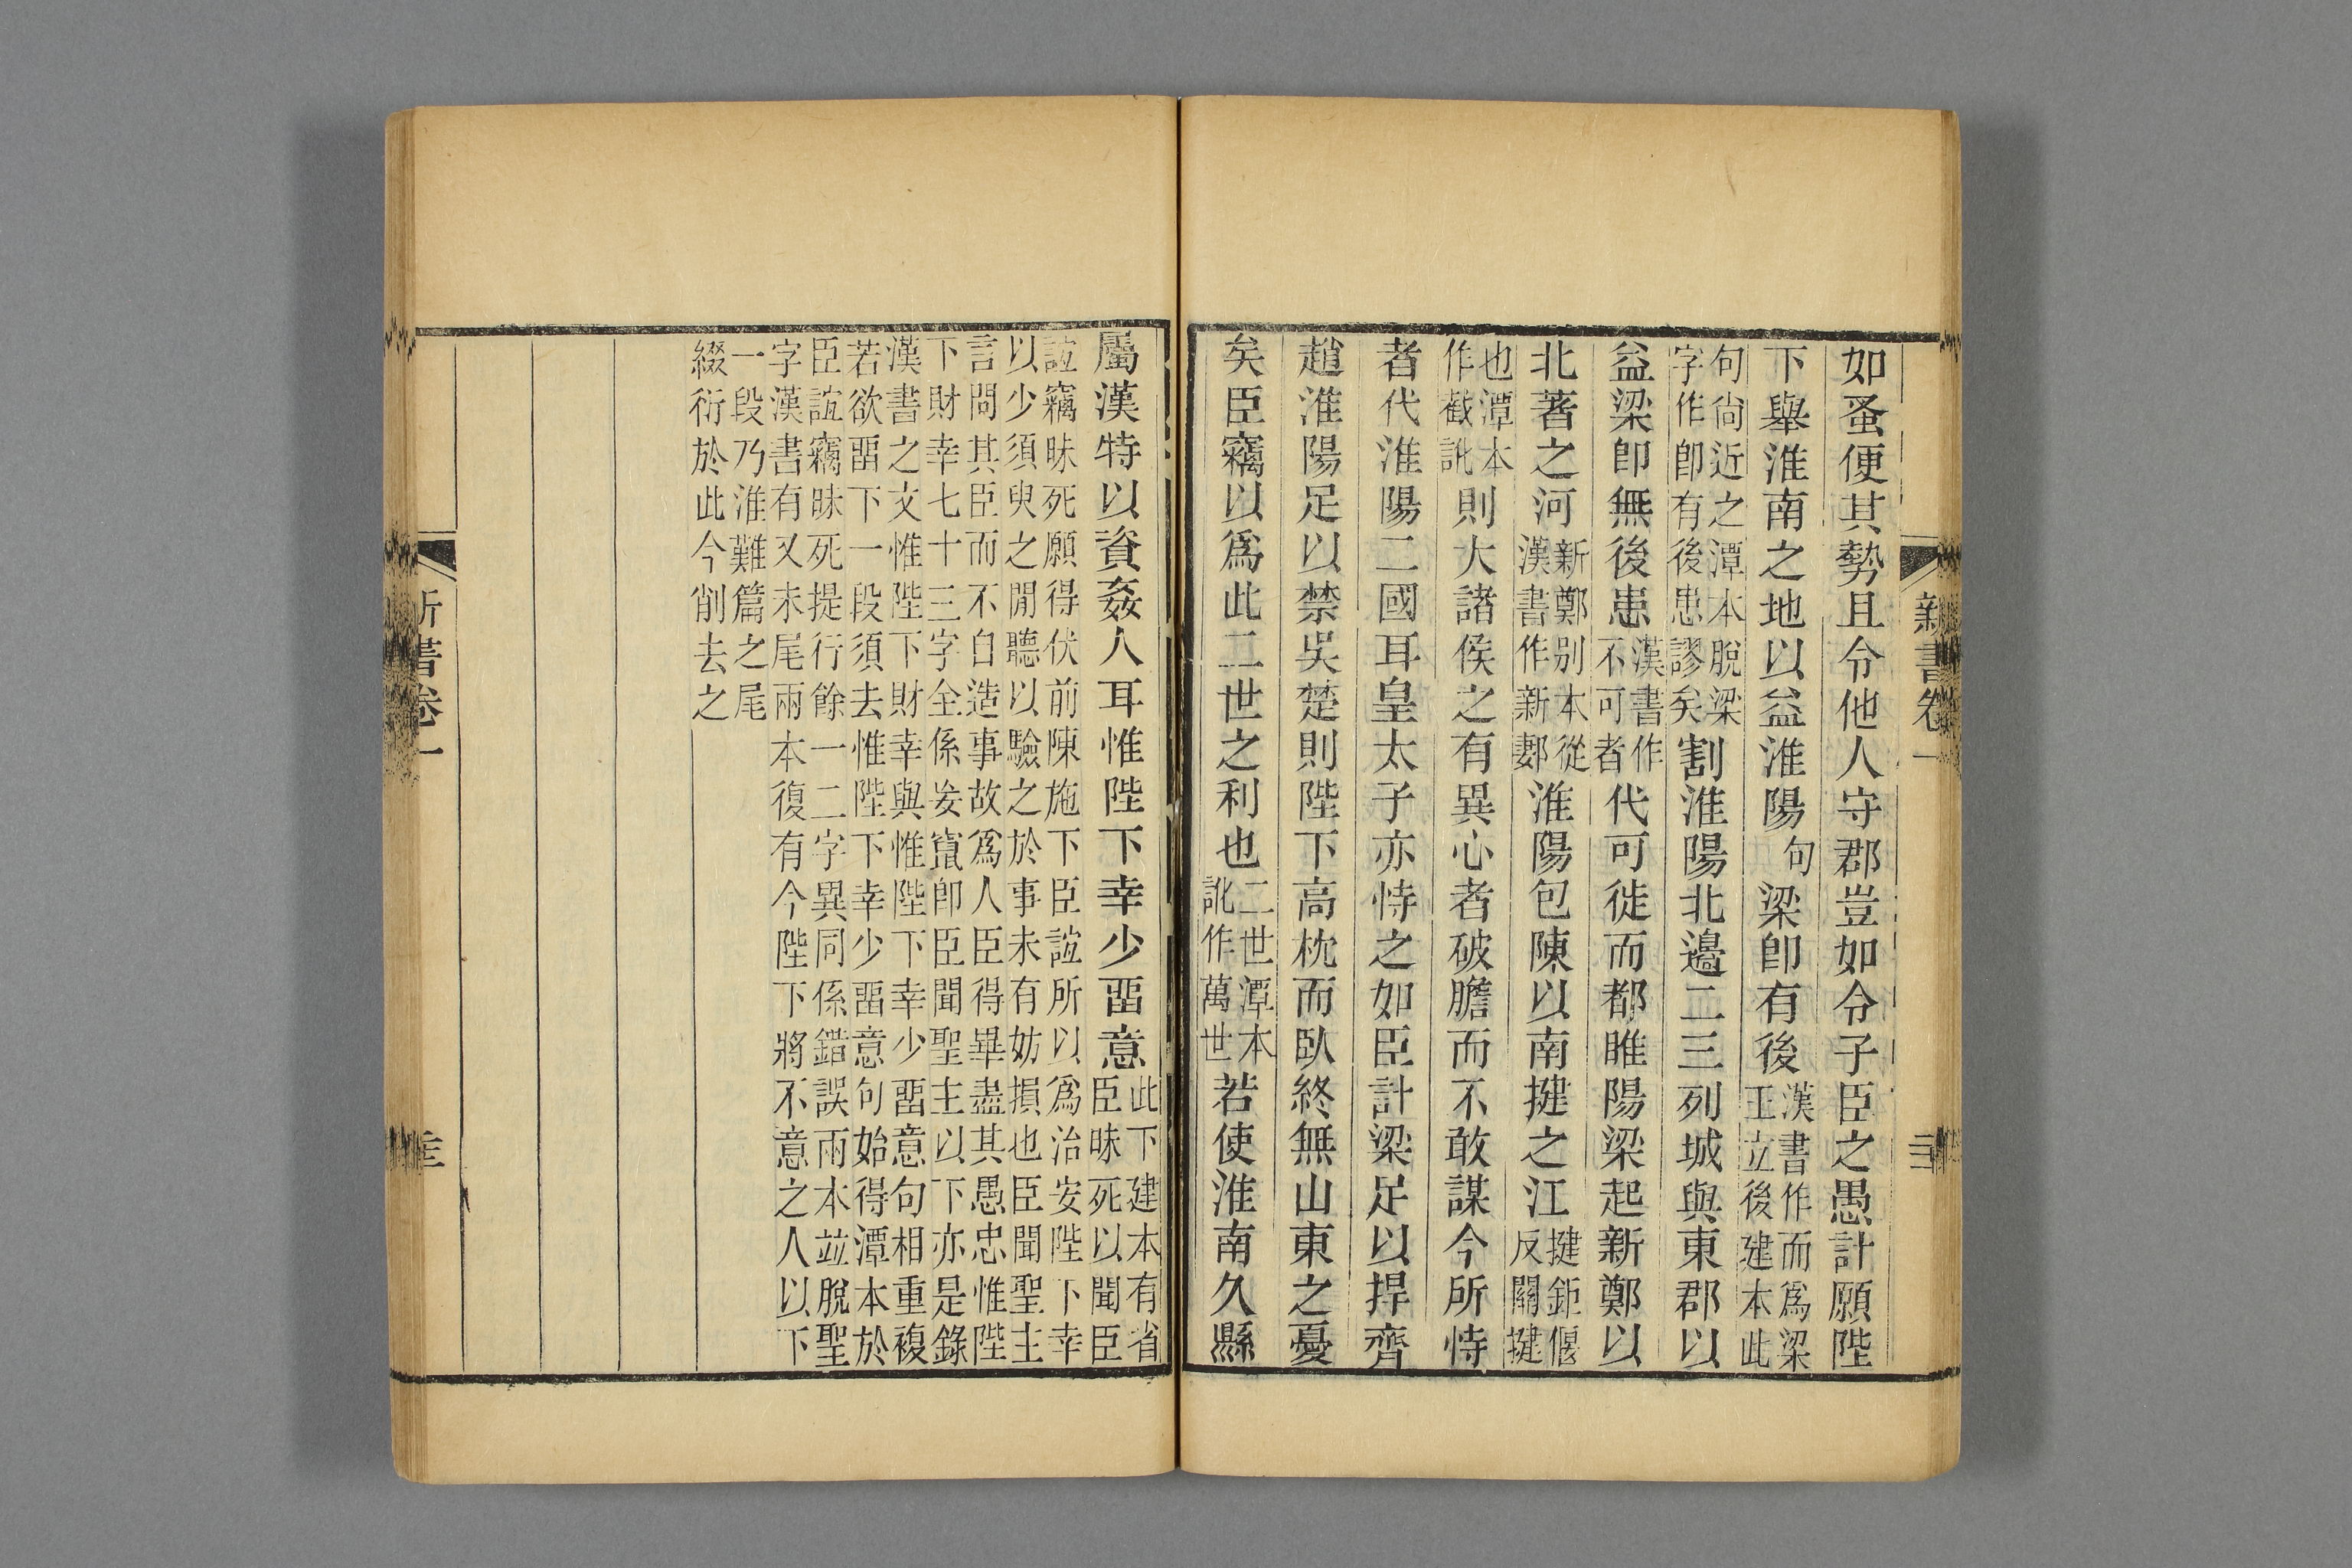 新書卷一
如蚤便其勢且令他人守郡豈如令子臣之愚計願陛
下舉淮南之地以益淮陽句梁卽有後漢書作而爲梁王立後建本此
句尙近之潭本脫梁字作卽有後患謬矣割淮陽北邊二三列城與東郡以
益梁卽無後患漢書作不可者代可徙而都睢陽梁起新鄭以
北著之河新鄭别本從漢書作新郪淮陽包陳以南揵之江揵鉅偃反關揵
也潭本作截訛則大諸侯之有異心者破膽而不敢謀今所恃
者代淮陽二國耳皇太子亦恃之如臣計梁足以捍齊
趙淮陽足以禁吳楚則陛下高枕而臥終無山東之憂
矣臣竊以爲此二世之利也二世潭本訛作萬世若使淮南久縣
屬漢特以資姦人耳惟陛下幸少畱意此下建本有省臣昧死以聞臣
誼竊昧死願得伏前陳施下臣誼所以爲治安陛下幸
以少須臾之閒聽以驗之於事未有妨損也臣聞聖主
言問其臣而不自造事故爲人臣得畢盡其愚忠惟陛
下財幸七十三字全係妄竄卽臣聞聖主以下亦是錄
漢書之文惟陛下財幸與惟陛下幸少畱意句相重複
若欲畱下一段須去惟陛下幸少畱意句始得潭本於
臣誼竊昧死提行餘一二字異同係錯誤兩本竝脫聖
字漢書有又末尾兩本復有今陛下將不意之人以下
一段乃淮難篇之尾
綴衍於此今削去之
新書卷一